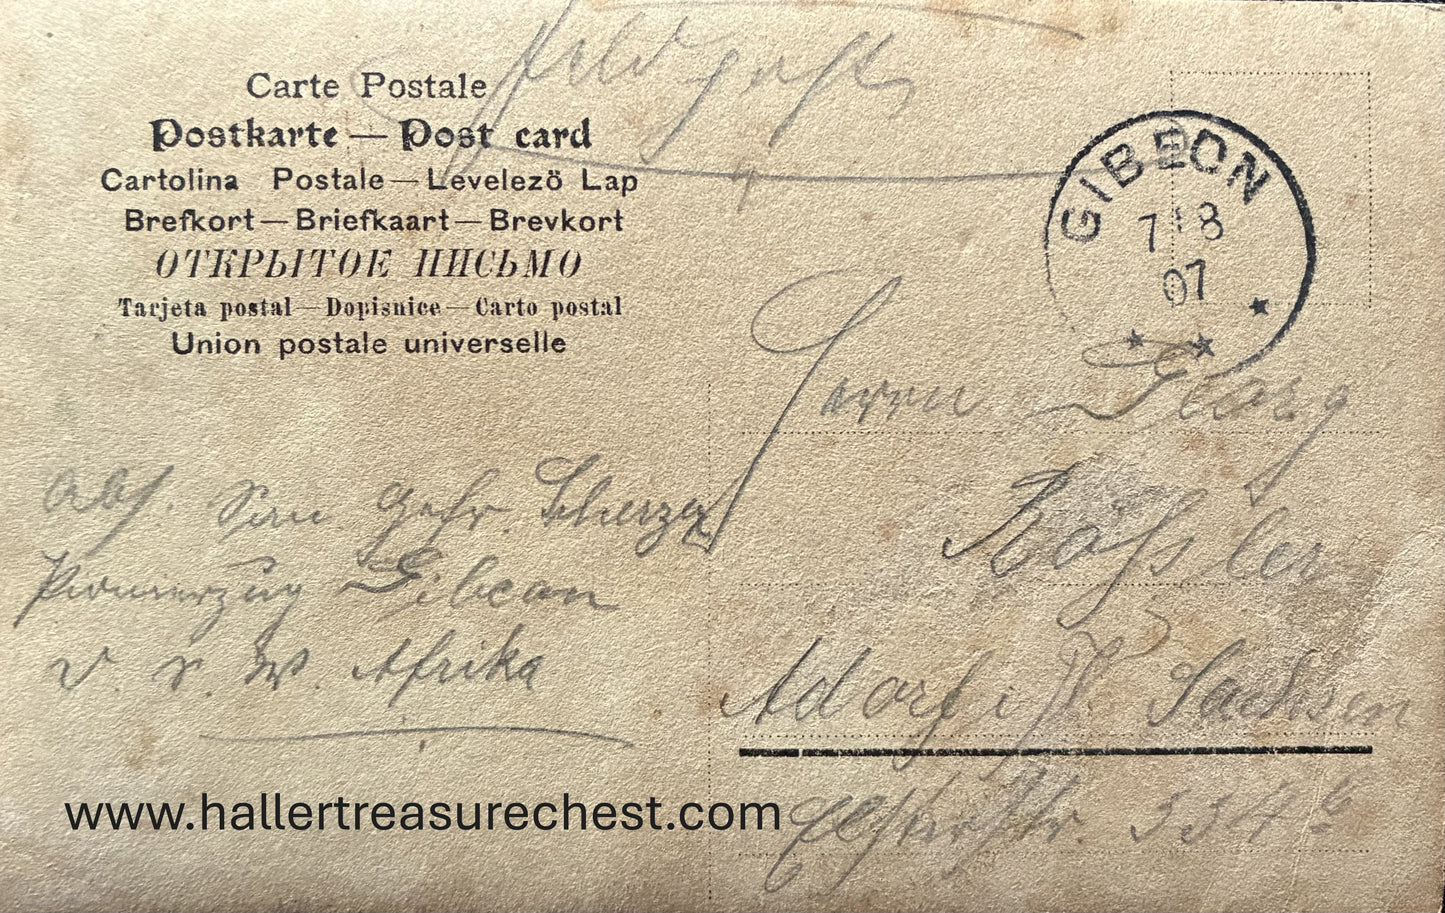 Feldpost
Carte Postale
Postkarte — Post card
Cartolina Postale — Levelező Lap
Brefkort — Briefkaart — Brevkort
ОТКРЫТОЕ ПИСЬМО
Tarjeta postal — Dopisnice — Carto postal
Union postale universelle
GIBEON
7 8
07
Herrn Georg
Adorf i/V. Sachsen
Abs. Gefr. Scherzer
Pionierzug Gibeon
Afrika
www.hallertreasurechest.com